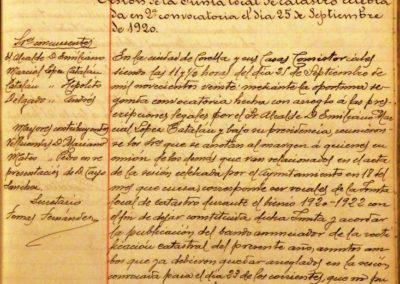 Sesión de la Junta local de catastro celebra
da en 2ª convocatoria el día 25 de Septiembre
de 1920.
Sres concurrentes
El Alcalde D. Emiliano
Marcial López Catalán
Catalán " Hipólito
Delgado " Andrés
Mayores contribuyentes
Mateo " Pedro en re
presentación de D. Cayo
Sanchez
Secretario
Tomas Fernández
En la ciudad de Corella y sus Casas Consistoriales
siendo las 11 y ½ horas del día 25 de Septiembre de
mil novecientos veinte mediante la oportuna se
gunda convocatoria hecha con arreglo á las pres-
cripciones legales por el Sr Alcalde D. Emiliano Mar
cial López Catalán y bajo su presidencia, reunieron
se los Sres que se anotan al margen á quienes en
unión de los demás que van relacionados en el acta
de la sesión celebrada por el Ayuntamiento en 18 del
mes que cursa corresponde ser vocales de la Junta
local de catastro durante el bienio 1920-1922 con
el fin de dejar constituida dicha Junta y acordar
la publicación del bando anunciador de la recti
ficación catastral del presente año, asuntos am
bos que ya debieron quedar arreglados en la sesión
convocada para el día 23 de los corrientes, que no pu